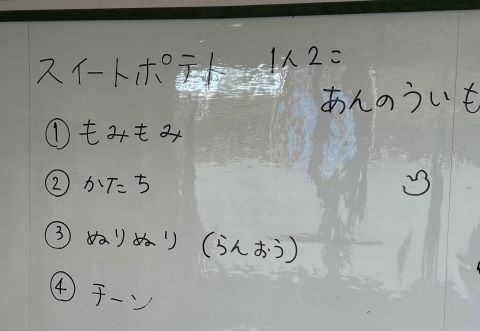 スイートポテト 1人2こ
あんのういも
①もみもみ
②かたち
③ぬりぬり(らんおう)
④チーン